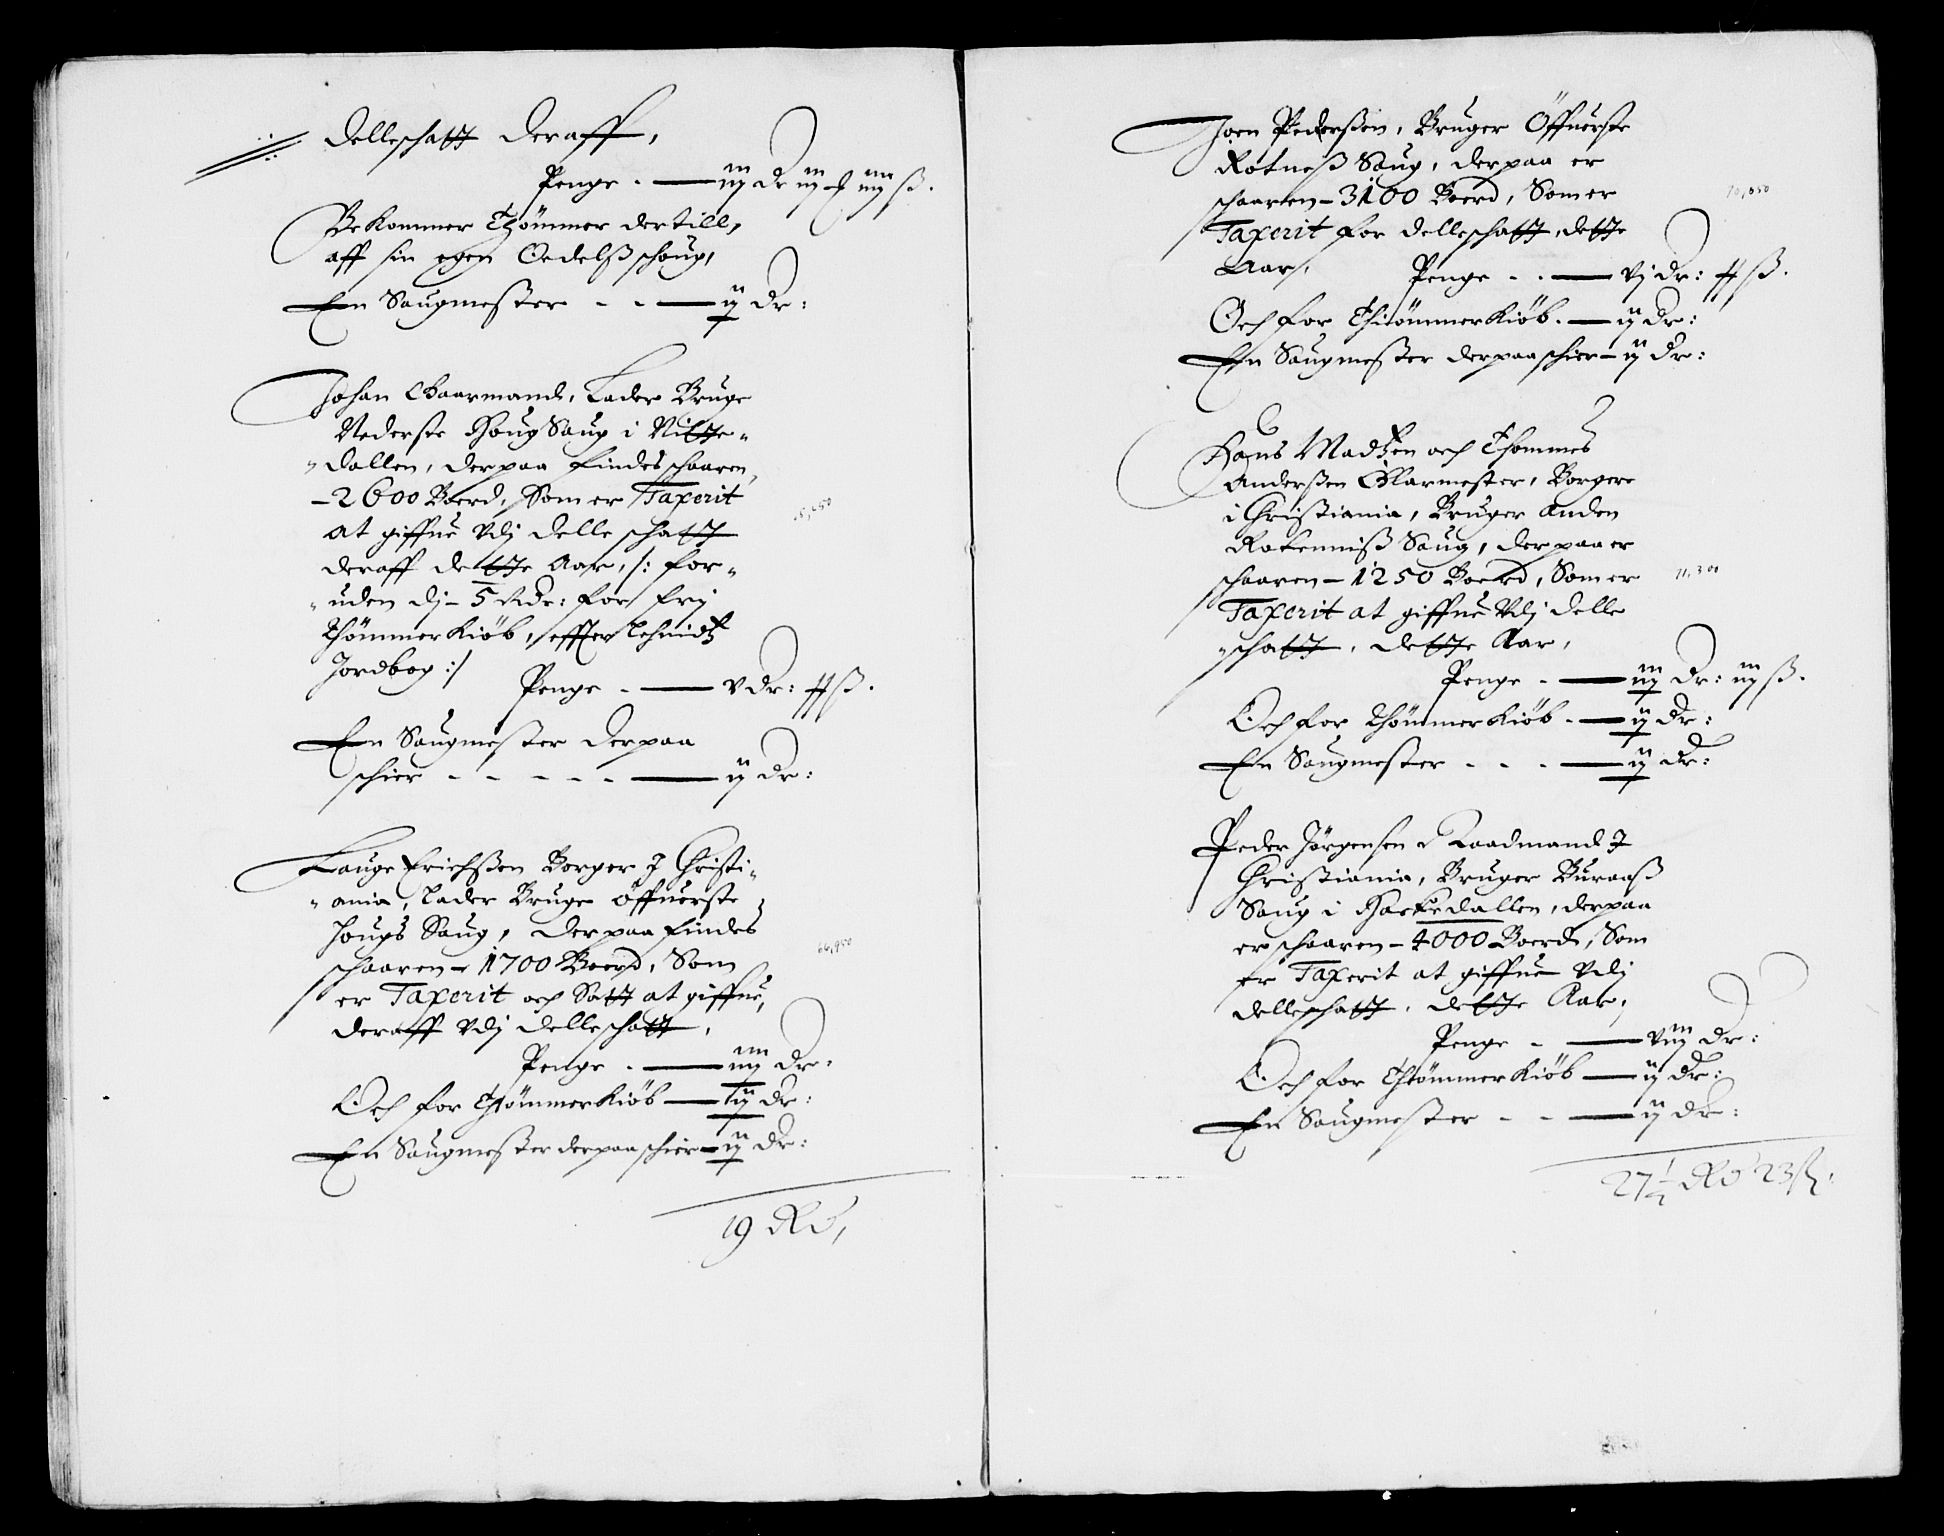 delleschatt deraff,
Penge - iij dr iij ƒ iiij ß.
Bekommer Thömmer dertill,
aff sin egen Oedelß schoug,
En Saugmester - - ij dr:
Johan Gaarmand, Lader Bruge
Nederste Houg Saug i Nitte-
dallen, derpaa findes schaaren
- 2600 Boerd, Som er Taxerit
at giffue vdj delle schatt
deraff dette Aar, /: for-
uden dj - 5 Rdr: for frj
Thömmer Kiöb, effter Lehnidtz
Jordbog :/ Penge - v dr: ß.
En Saugmester derpaa
schier - - - - - ij dr:
Lauge Erichßen Borger J Christi-
ania, Lader Bruge öffuerste
Hougs Saug, derpaa findes
schaaren - 1700 Boerd, Som
er Taxerit och Satt at giffue,
deraff vdj delleschatt,
Penge - iiij dr:
Och for Thömmer Kiöb - ij dr:
En Saugmester derpaa schier - ij dr:
19 Rd,
66,950
Joen Pederßen, Bruger Öffuerste
Rotneß Saug, derpaa er
schaaren - 3100 Boerd, Som er
Taxerit for delleschatt, dette
Aar, Penge - - vj dr: ß.
Och for Thömmer Kiöb - ij dr:
En Saugmester derpaa schier - ij dr:
70,050
Hans Madtzen och Thommes
Anderßen Glarmester, Borgere
i Christiania, Bruger Anden
Rotenniß Saug, derpaa er
schaaren - 1250 Boerd, Som er
Taxerit at giffue vdj delle
schatt, dette Aar,
Penge - iij dr: iij ß.
Och for Thömmer Kiöb - ij dr:
En Saugmester - - - ij dr:
71,300
Peder Jörgensen Raadmand J
Christiania, Bruger Buraaß
Saug i Hackedallen, derpaa
er schaaren - 4000 Boerd, Som
er Taxerit at giffue vdj
delleschatt, dette Aar,
Penge - viij dr:
Och for Thömmer Kiöb - ij dr:
En Saugmester - - ij dr:
27 1/4 Rd 23 ß: